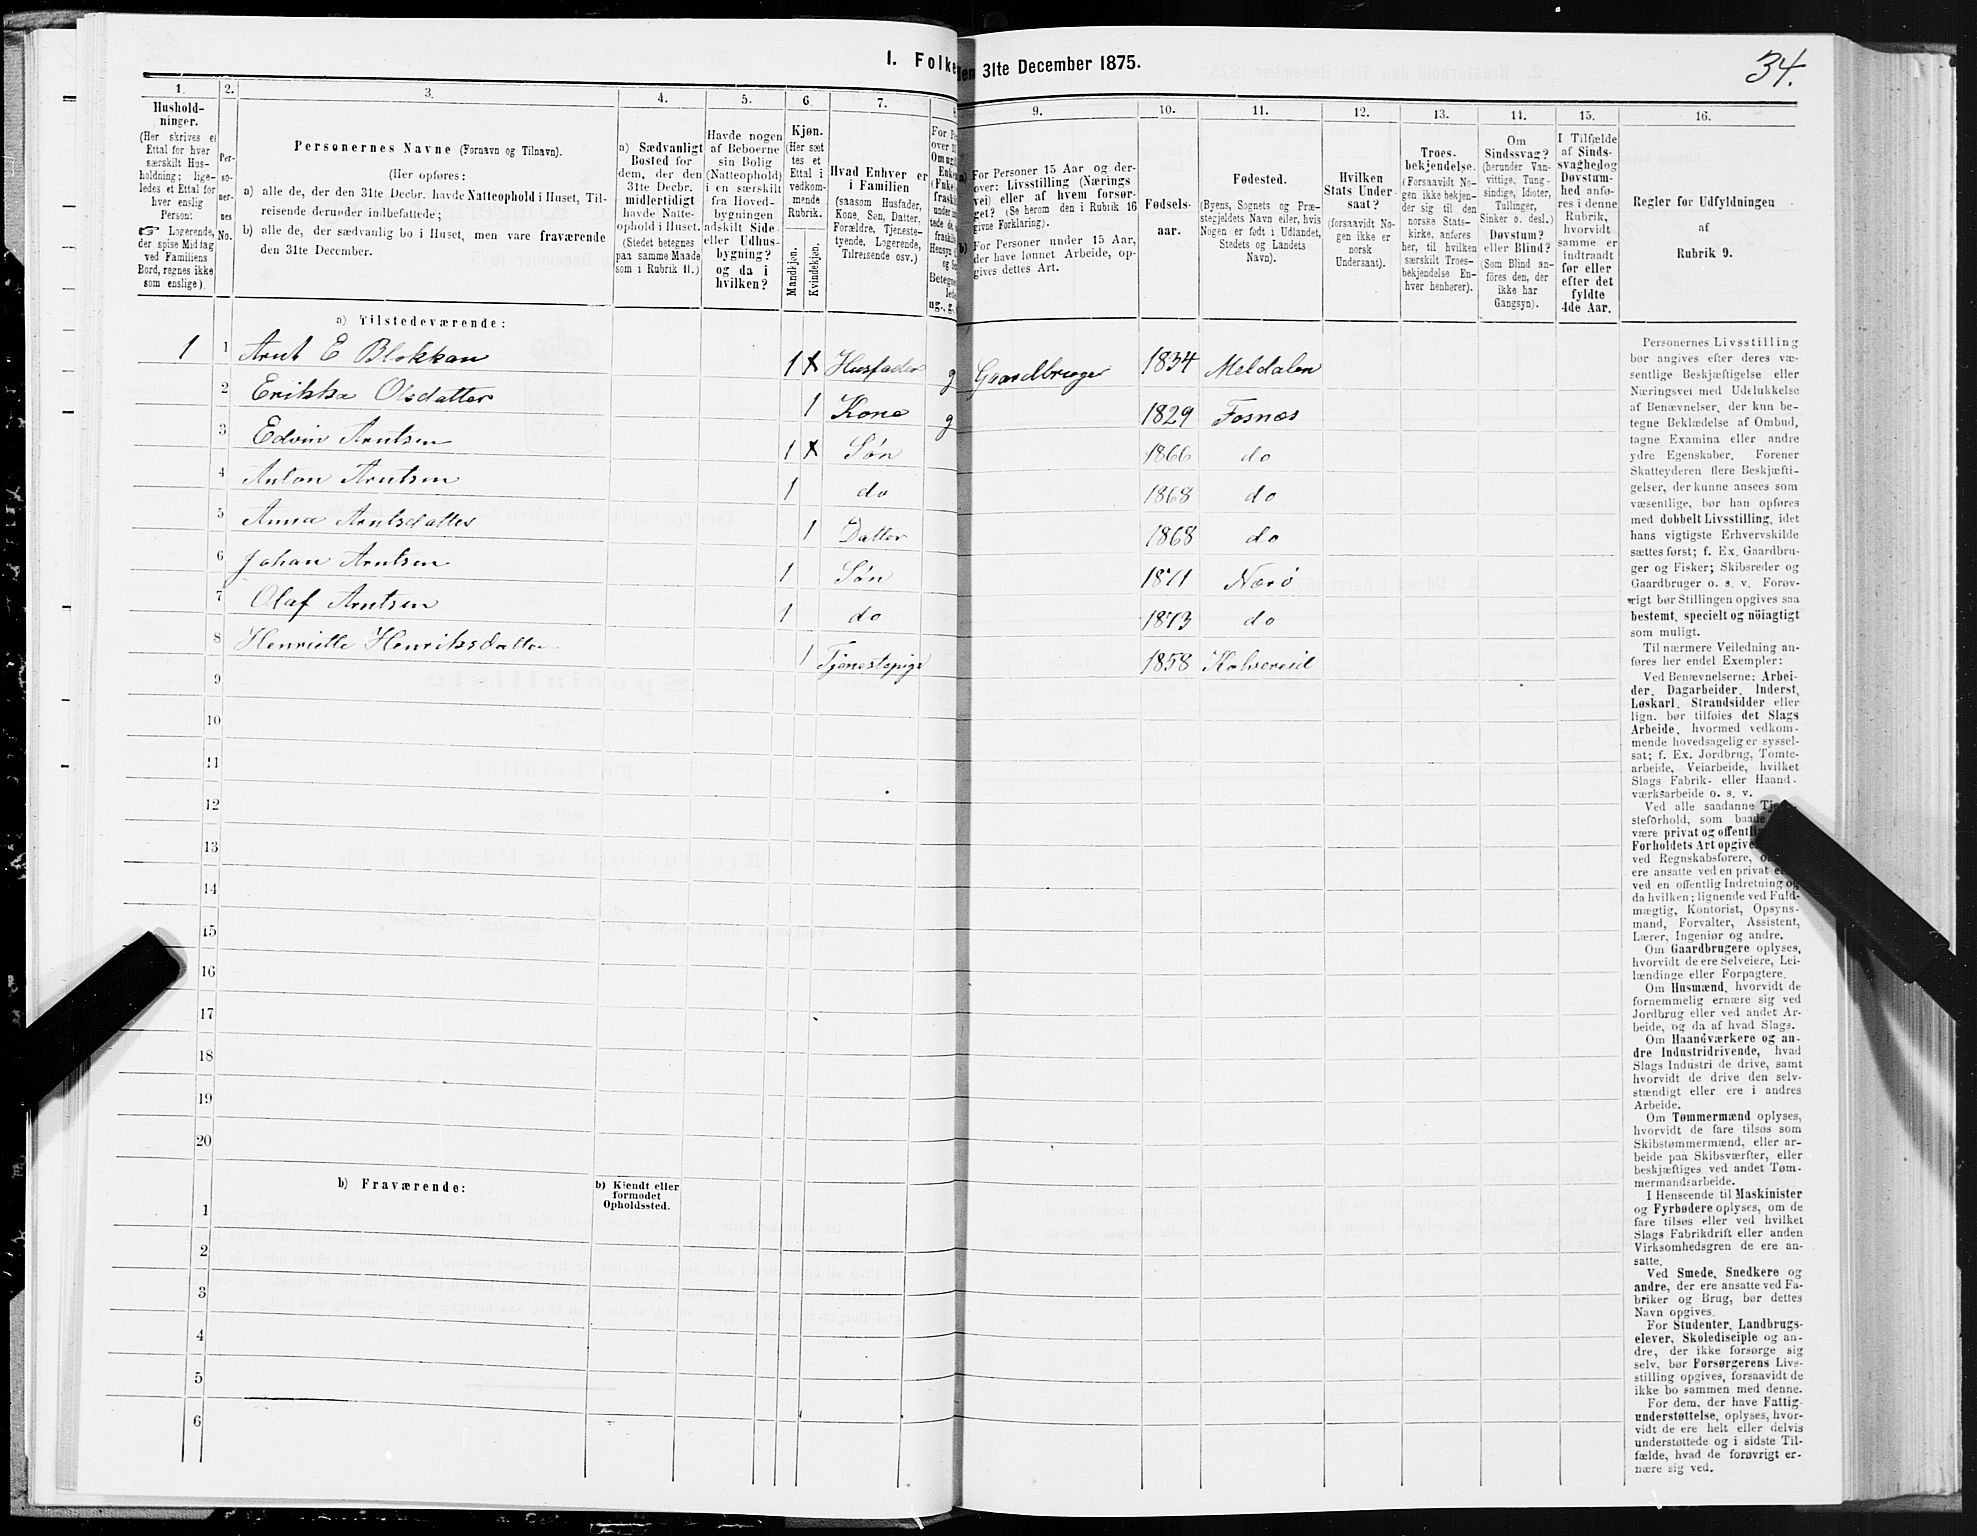 34.
I. Folke
den 31te December 1875.
1.
Hushold-
ninger.
(Her skrives et
Ettal for hver
særskilt Hus-
holdning; lige-
ledes et Ettal for
hver enslig
Person:
☞ Logerende,
der spise Middag
ved Familiens
Bord, regnes ikke
som enslige).
2.
Per-
so-
ner-
nes
No.
3.
Personernes Navne (Fornavn og Tilnavn).
(Her opføres:
a) alle de, der den 31te Decbr. havde Natteophold i Huset, Til-
reisende derunder indbefattede;
b) alle de, der sædvanlig bo i Huset, men vare fraværende
den 31te December.
4.
a) Sædvanligt
Bosted for
dem, der den
31te Decbr.
midlertidigt
havde Natte-
ophold i Huset.
(Stedet betegnes
paa samme Maade
som i Rubrik 11.)
5.
Havde nogen
af Beboerne
sin Bolig
(Natteophold)
i en særskilt
fra Hoved-
bygningen
adskilt Side-
eller Udhus-
bygning?
og da i
hvilken?
6.
Kjøn.
(Her sæt
tes et
Ettal i
vedkom-
mende
Rubrik.
Mandkjøn.
Kvindekjøn.
7.
Hvad Enhver er
i Familien
(saasom Husfader,
Kone, Søn, Datter,
Forældre, Tjeneste-
tyende, Logerende,
Tilreisende osv.)
8
9.
a) For Personer 15 Aar og der-
over: Livsstilling (Nærings-
vei) eller af hvem forsør-
get? (Se herom den i Rubrik 16
givne Forklaring).
b) For Personer under 15 Aar,
der have lønnet Arbeide, op-
gives dettes Art.
10.
Fødsels-
aar.
11.
Fødested.
(Byens, Sognets og Præ-
stegjeldets Navn eller, hvis
Nogen er født i Udlandet,
Stedets og Landets
Navn).
12.
Hvilken
Stats Under-
saat?
(forsaavidt No-
gen ikke er
norsk
Undersaat).
13.
Troes-
bekjendelse.
(Forsaavidt No-
gen ikke bekjen-
der sig til den
norske Stats-
kirke, anføres
her, til hvilken
særskilt Troes-
bekjendelse En-
hver henhører).
14.
Om
Sindssvag?
(herunder Van-
vittige, Tung-
sindige, Idioter,
Tullinger,
Sinker o. desl.)
Døvstum?
eller Blind?
(Som Blind an-
föres den, der
ikke har
Gangsyn).
15.
I Tilfælde
af Sinds-
svaghed og
Døvstum-
hed anfø-
res i denne
Rubrik,
hvorvidt
samme er
indtraadt
før eller
efter det
fyldte
4de Aar.
16.
Regler for Udfyldningen
af
Rubrik 9.
a) Tilstedeværende:
1 1 Arnt E Blokkan 1 Husfader g Gaardbruger 1834 Meldalen
2 Erikka Olsdatter 1 Kone g 1829 Fosnæs
3 Edvin Arntsen 1 Søn 1866 do
4 Anton Arntsen 1 do 1868 do
5 Anna Arntsdatter 1 Datter 1868 do
6 Johan Arntsen 1 Søn 1871 Nærø
7 Olaf Arntsen 1 do 1873 do
8 Henriette Henriksdatter 1 Tjenestepige 1858 Kolvereid
9
10
11
12
13
14
15
16
17
18
19
20
b) Fraværende:
b) Kjendt eller
formodet
Opholdssted.
1
2
3
4
5
6
Personernes Livsstilling
bør angives efter deres væ-
sentlige Beskjæftigelse eller
Næringsvei med Udelukkelse
af Benævnelser, der kun be-
tegne Beklædelse af Ombud,
tagne Examina eller andre
ydre Egenskaber. Forener
Skatteyderen flere Beskjæfti-
gelser, der kunne ansees som
væsentlige, bør han opføres
med dobbelt Livsstilling, idet
hans vigtigste Erhvervskilde
sættes først; f. Ex. Gaardbru-
ger og Fisker; Skibsreder og
Gaardbruger o. s. v. Forøv-
rigt bør Stillingen opgives saa
bestemt, specielt og nöiagtigt
som muligt.
Til nærmere Veiledning an-
føres her endel Exempler:
Ved Benævnelserne: Arbei-
der, Dagarbeider, Inderst,
Løskarl, Strandsidder eller
lign. bør tilføies det Slags
Arbeide, hvormed vedkom-
mende hovedsagelig er syssel-
sat; f. Ex. Jordbrug, Tomte-
arbeide, Veiarbeide, hvilket
Slags Fabrik- eller Haand-
værksarbeide o. s. v.
Ved alle saadanne
steforhold, som baade
være privat og
Forholdets Art
ved Regnskabsførere,
ere ansatte ved en privat
ved en offentlig Indretning og
da hvilken; lignende ved Fuld-
mægtig, Kontorist, Opsyns-
mand, Forvalter, Assistent,
Lærer, Ingeniør og andre.
Om Gaardbrugere oplyses,
hvorvidt de ere Selveiere, Lei-
lændinge eller Forpagtere.
Om Husmænd, hvorvidt de
fornemmelig ernære sig ved
Jordbrug eller ved andet Ar-
beide, og da af hvad Slags.
Om Haandværkere og an-
dre Industridrivende, hvad
Slags Industri de drive, samt
hvorvidt de drive den selv-
stændigt eller ere i andres
Arbeide.
Om Tømmermænd oplyses,
hvorvidt de fare tilsøs som
Skibstømmermænd, eller ar-
beide paa Skibsværfter, eller
beskjæftiges ved andet Tøm-
mermandsarbeide.
I Henseende til Maskinister
og Fyrbødere oplyses, om de
fare tilsøs eller ved hvilket
Slags Fabrikdrift eller anden
Virksomhedsgren de ere an-
satte.
Ved Smede, Snedkere og
andre, der ere ansatte ved Fa-
briker og Brug, bør dettes
Navn opgives.
For Studenter, Landbrugs-
elever, Skoledisciple og an-
dre, der ikke forsørge sig
selv, bør Forsørgerens Livs-
stilling opgives, forsaavidt de
ikke bo sammen med denne.
For dem, der have Fattig-
understøttelse, oplyses, hvor-
vidt de ere helt eller delvis
understøttede og i sidste Til-
fælde, hvad de forøvrigt er-
nære sig ved.